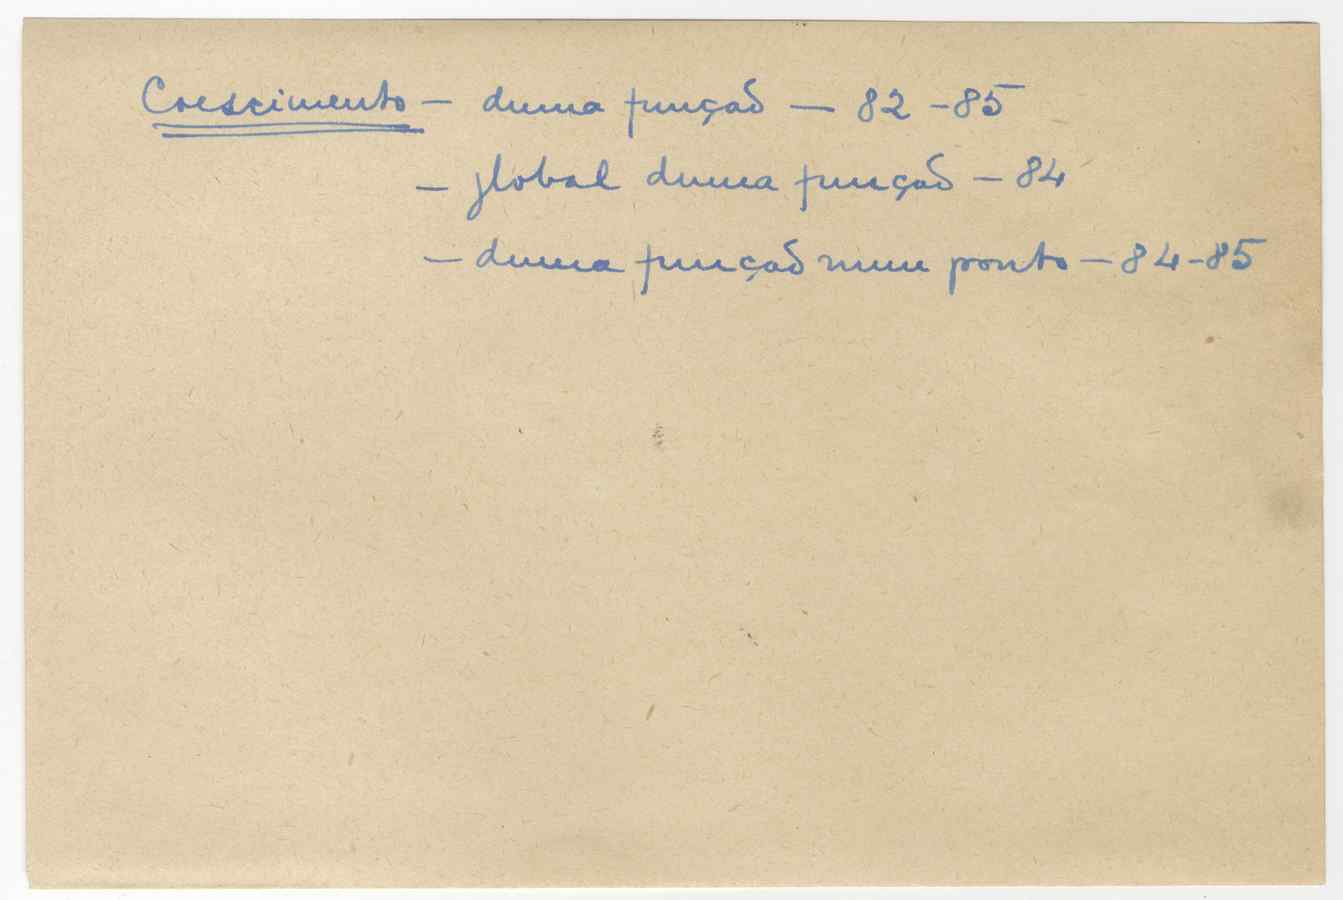 Crescimento - duma função - 82-85
- global duma função - 84
- duma função num ponto - 84-85